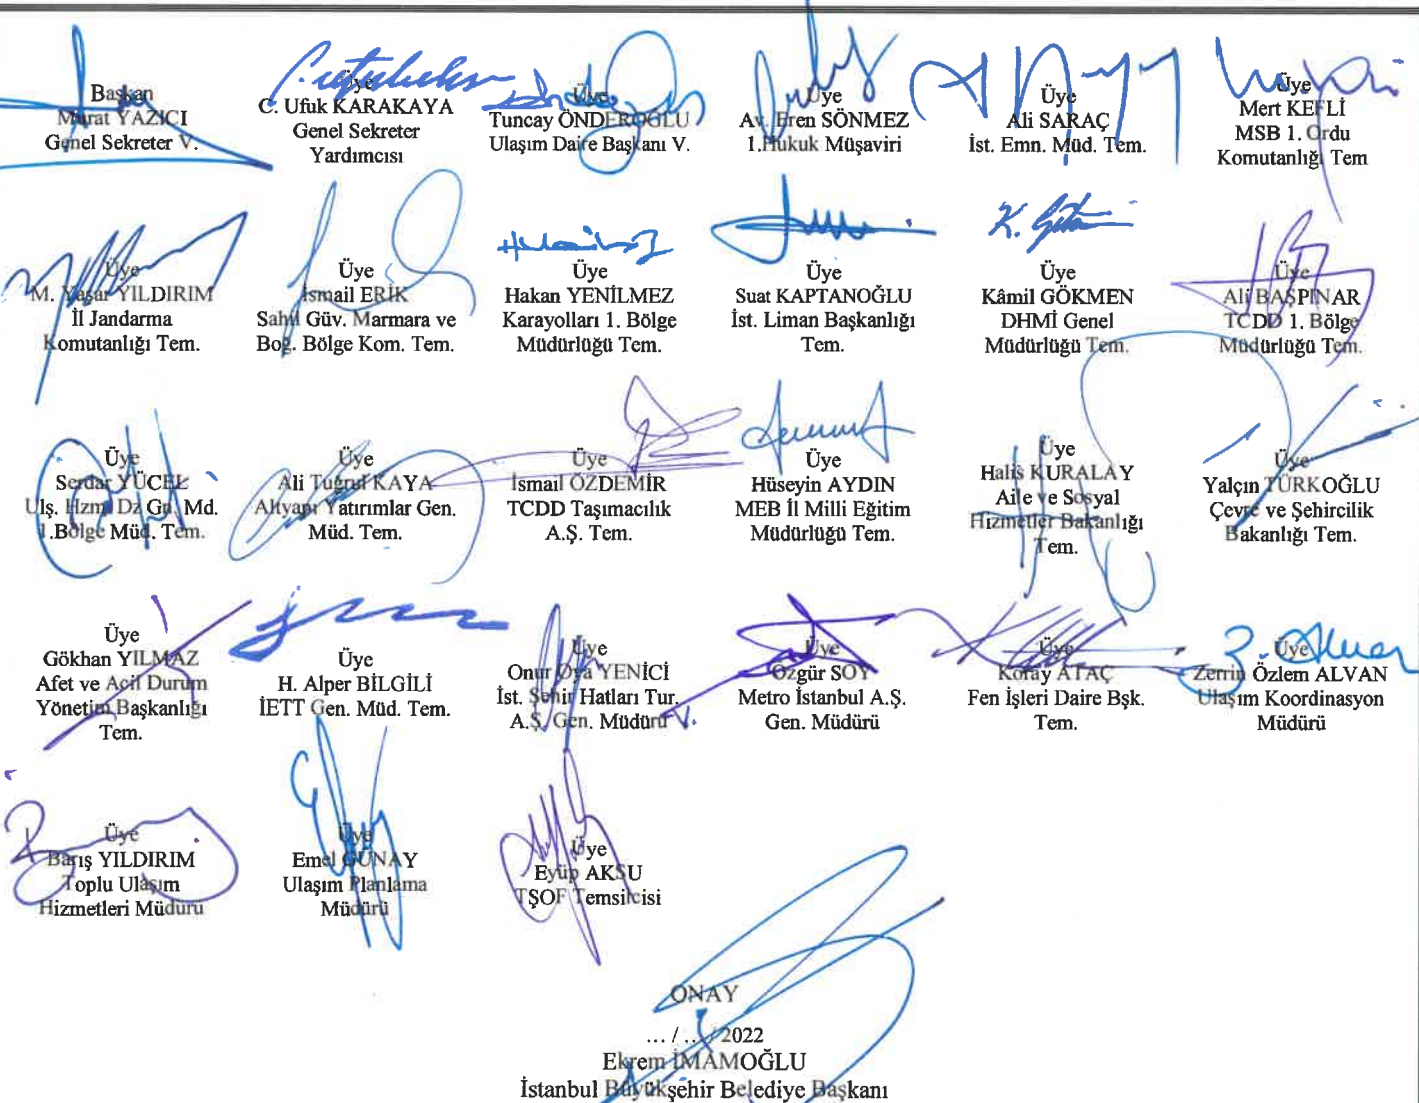 Başkan
Murat YAZICI
Genel Sekreter V.
Üye
C. Ufuk KARAKAYA
Genel Sekreter
Yardımcısı
Üye
Tuncay ÖNDEROĞLU
Ulaşım Daire Başkanı V.
Üye
Av. Eren SÖNMEZ
1.Hukuk Müşaviri
Üye
Ali SARAÇ
İst. Emn. Müd. Tem.
Üye
Mert KEFLİ
MSB 1. Ordu
Komutanlığı Tem
Üye
M. Yaşar YILDIRIM
İl Jandarma
Komutanlığı Tem.
Üye
İsmail ERİK
Sahil Güv. Marmara ve
Boğ. Bölge Kom. Tem.
Üye
Hakan YENİLMEZ
Karayolları 1. Bölge
Müdürlüğü Tem.
Üye
Suat KAPTANOĞLU
İst. Liman Başkanlığı
Tem.
K.
Üye
Kâmil GÖKMEN
DHMİ Genel
Müdürlüğü Tem.
Üye
Ali BAŞPINAR
TCDD 1. Bölge
Müdürlüğü Tem.
Üye
Serdar YÜCEL
Ulş. Hzm. Dz Gn. Md.
1.Bölge Müd. Tem.
Üye
Ali Tuğrul KAYA
Altyapı Yatırımlar Gen.
Müd. Tem.
Üye
İsmail ÖZDEMİR
TCDD Taşımacılık
A.Ş. Tem.
Üye
Hüseyin AYDIN
MEB İl Milli Eğitim
Müdürlüğü Tem.
Üye
Halis KURALAY
Aile ve Sosyal
Hizmetler Bakanlığı
Tem.
Üye
Yalçın TÜRKOĞLU
Çevre ve Şehircilik
Bakanlığı Tem.
Üye
Gökhan YILMAZ
Afet ve Acil Durum
Yönetim Başkanlığı
Tem.
Üye
H. Alper BİLGİLİ
İETT Gen. Müd. Tem.
Üye
Onur Oya YENİCİ
İst. Şehir Hatları Tur.
A.Ş. Gen. Müdürü V.
Üye
Özgür SOY
Metro İstanbul A.Ş.
Gen. Müdürü
Üye
Koray ATAÇ
Fen İşleri Daire Bşk.
Tem.
Üye
Zerrin Özlem ALVAN
Ulaşım Koordinasyon
Müdürü
Üye
Barış YILDIRIM
Toplu Ulaşım
Hizmetleri Müdürü
Üye
Emel GÜNAY
Ulaşım Planlama
Müdürü
Üye
Eyüp AKSU
TŞOF Temsilcisi
ONAY
... / ... / 2022
Ekrem İMAMOĞLU
İstanbul Büyükşehir Belediye Başkanı